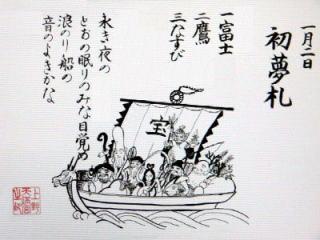 一月二日
初夢札
一富士
二鷹
三なすび
永き夜の
とおの眠りのみな目覚め
浪のり船の
音のよきかな
宝